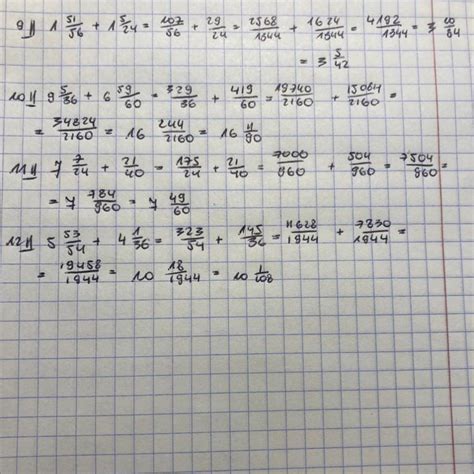 9) 1 51/56 + 1 5/24 = 107/56 + 29/24 = 2568/1344 + 1624/1344 = 4192/1344 = 3 10/84
= 3 5/42
10) 9 5/36 + 6 59/60 = 329/36 + 419/60 = 19740/2160 + 15084/2160 =
= 34824/2160 = 16 244/2160 = 16 11/90
11) 7 7/24 + 21/40 = 175/24 + 21/40 = 7000/960 + 504/960 = 7504/960 =
= 7 784/960 = 7 49/60
12) 5 53/54 + 4 1/36 = 323/54 + 145/36 = 11628/1944 + 7830/1944 =
= 19458/1944 = 10 18/1944 = 10 1/108